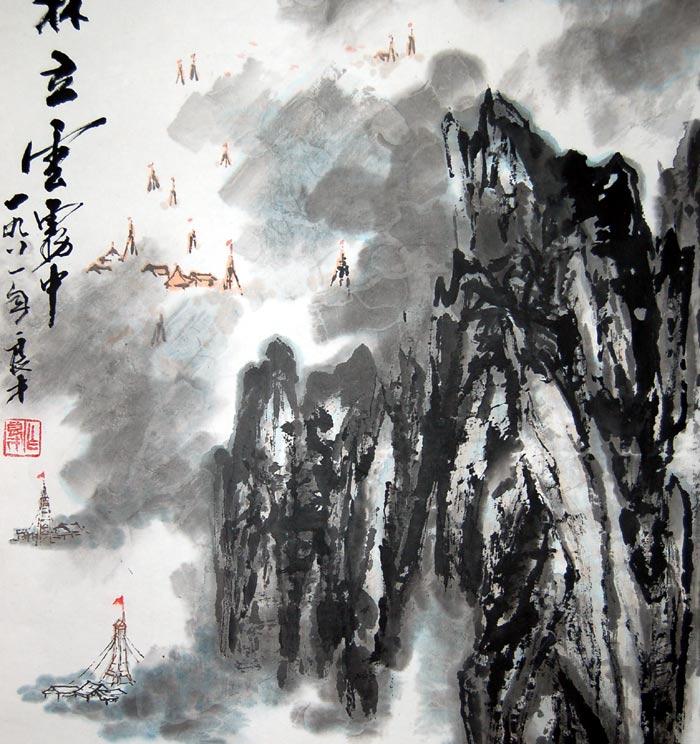 林立雲霧中
一九八一年良才